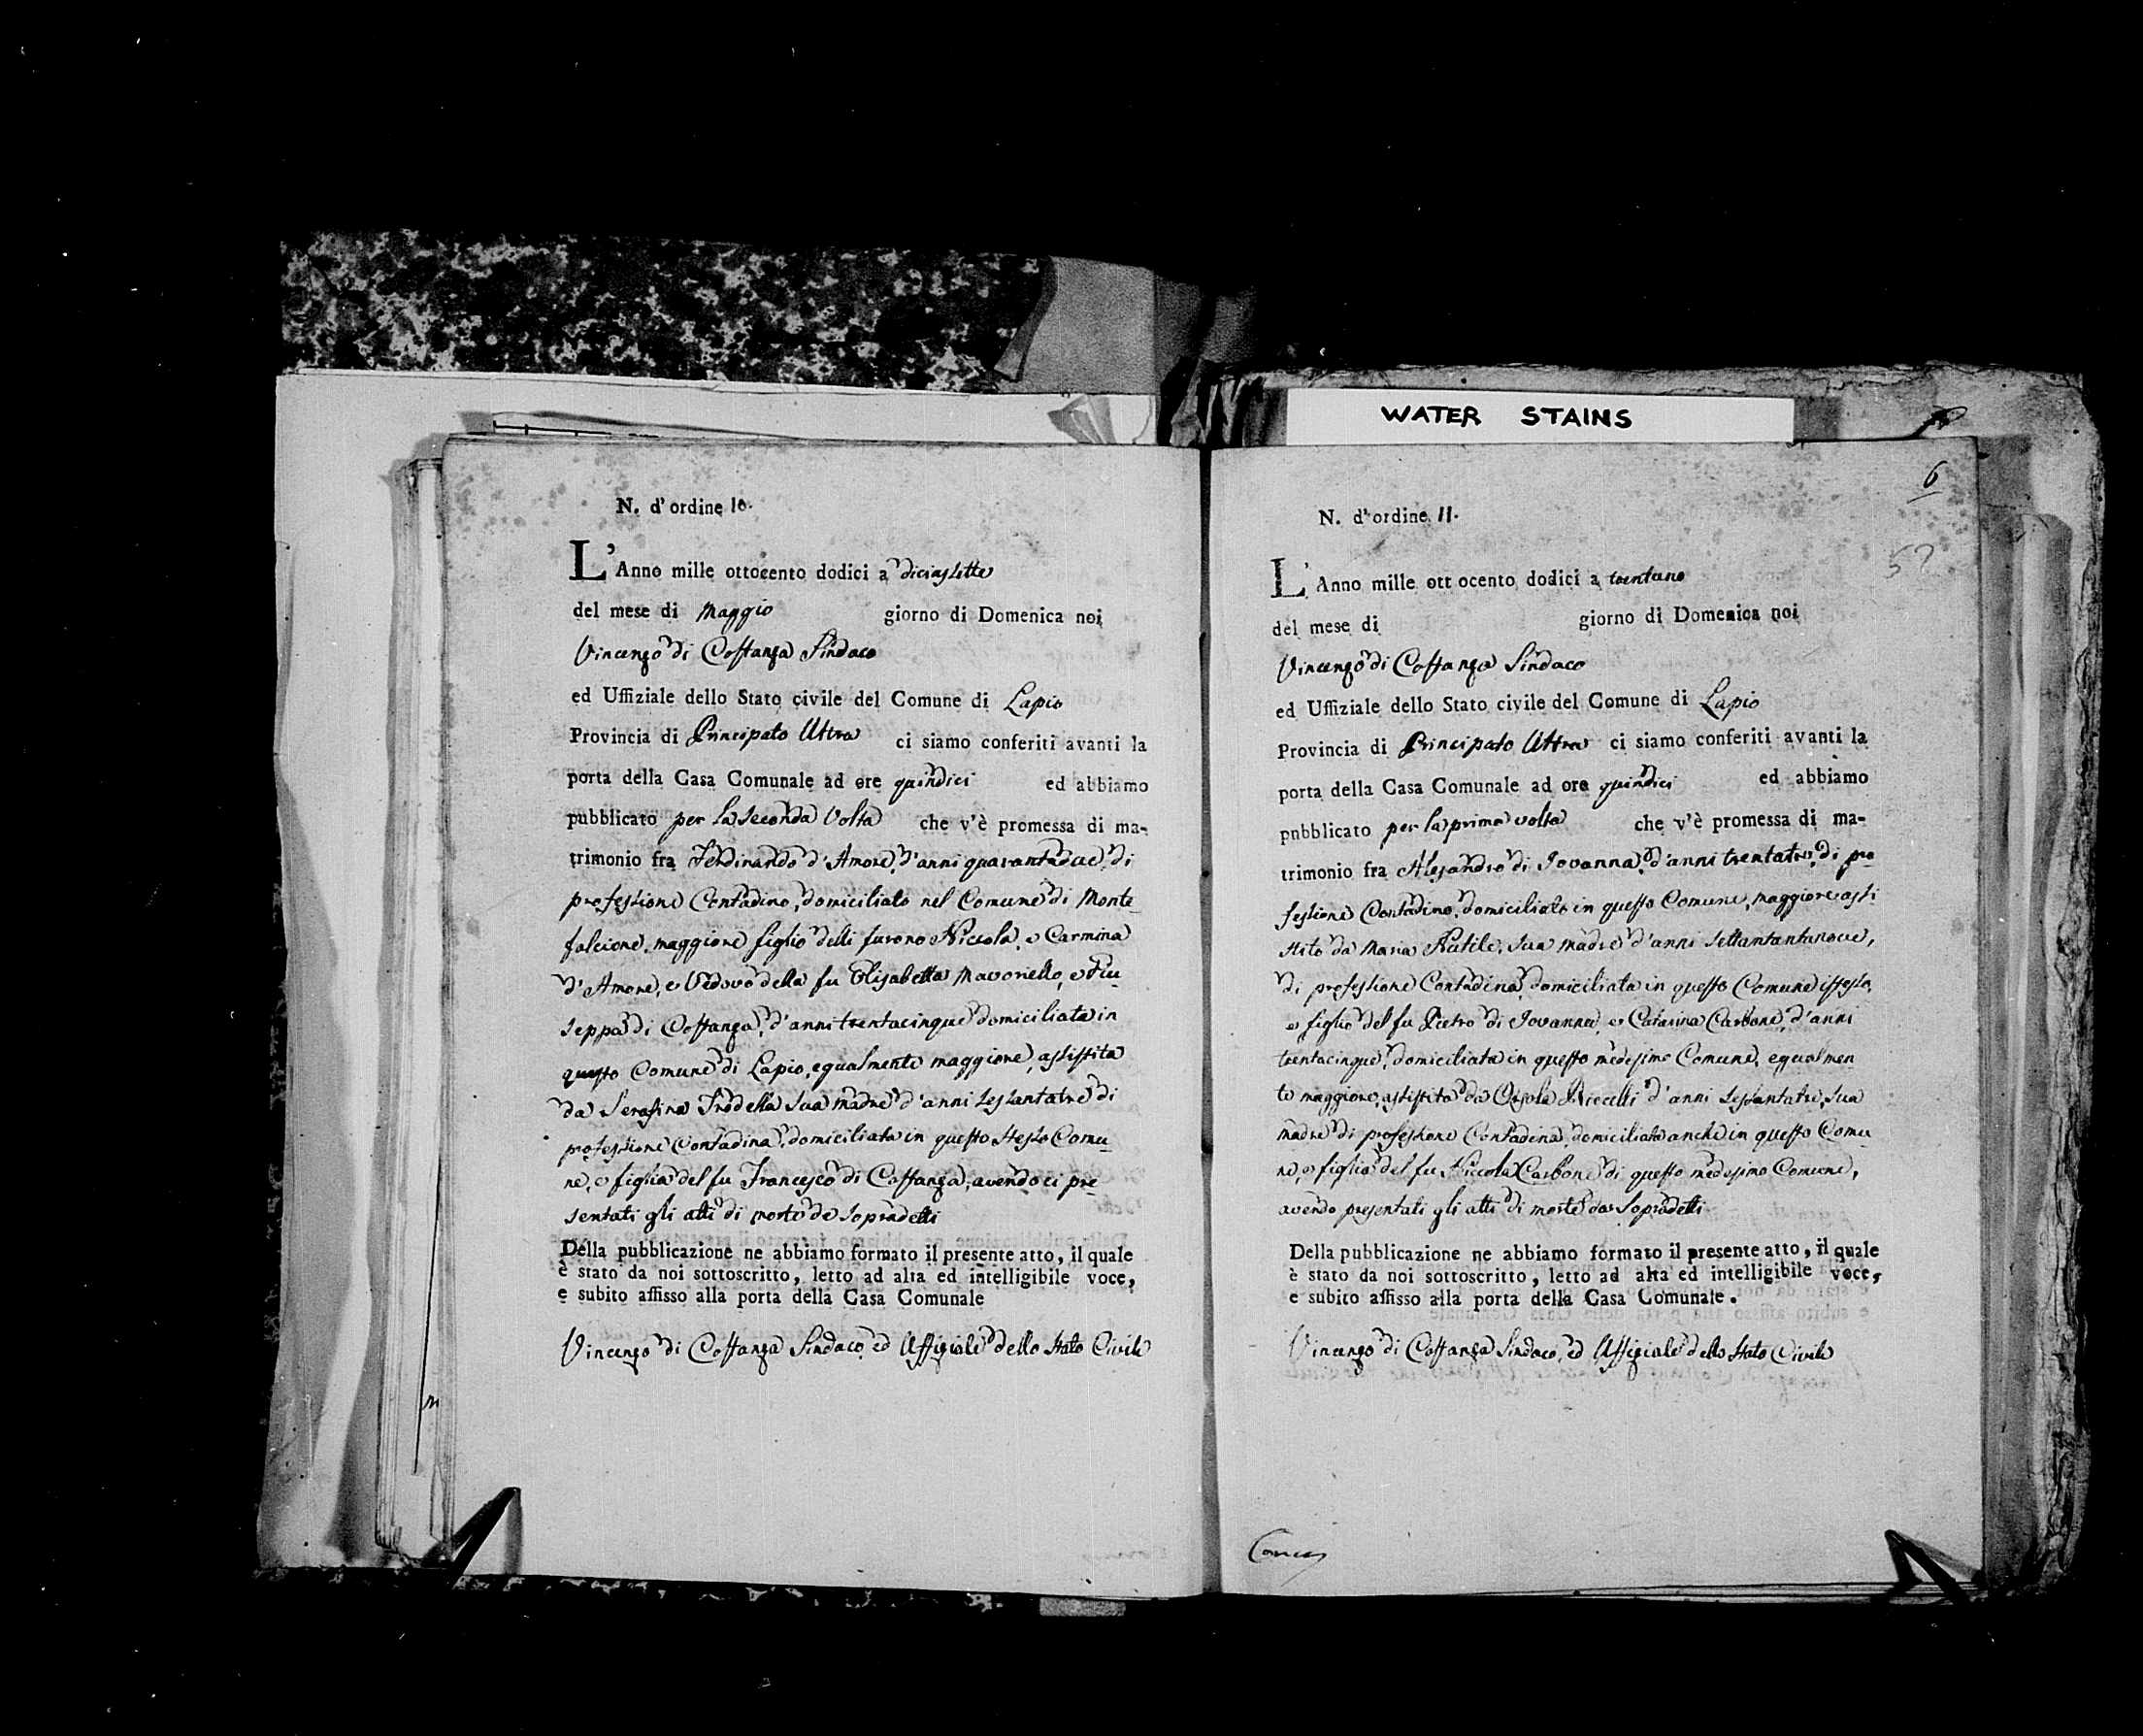 N. d'ordine 10.
L'Anno mille ottocento dodici a diciassette
del mese di Maggio giorno di Domenica noi
Vincenzo di Costanza Sindaco
ed Uffiziale dello Stato civile del Comune di Lapio
Provincia di Principato Ultra ci siamo conferiti avanti la
porta della Casa Comunale ad ore quindici ed abbiamo
pubblicato per la seconda volta che v'è promessa di ma-
trimonio fra Ferdinando d'Amore, d'anni quarantadue, di
professione Contadino, domiciliato nel Comune di Monte-
falcione, maggiore figlio delli furono Niccola, e Carmina
d'Amore, e Vedovo della fu Elisabetta Mavoriello, e Giu-
seppa di Costanza, d'anni trentacinque domiciliata in
questo Comune di Lapio, egualmente maggiore, assistita
da Serafina Trodella sua madre d'anni sessantatre di
professione Contadina, domiciliata in questo stesso Comu-
ne, e figlia del fu Francesco di Costanza, avendoci pre-
sentati gli atti di morte de sopradetti
Della pubblicazione ne abbiamo formato il presente atto, il quale
è stato da noi sottoscritto, letto ad alta ed intelligibile voce,
e subito affisso alla porta della Casa Comunale
Vincenzo di Costanza Sindaco, ed Uffiziale dello Stato Civile
WATER STAINS
6
N. d'ordine 11.
L'Anno mille ott ocento dodici a trentuno
del mese di giorno di Domenica noi
Vincenzo di Costanza Sindaco
ed Uffiziale dello Stato civile del Comune di Lapio
Provincia di Principato Ultra ci siamo conferiti avanti la
porta della Casa Comunale ad ore quindici ed abbiamo
pubblicato per la prima volta che v'è promessa di ma-
trimonio fra Alesandro di Iovanna, d'anni trentatre, di pro-
fessione Contadino, domiciliato in questo Comune, maggiore assi
stito da Maria Rutile, sua madre d'anni settantantanove,
di professione Contadina, domiciliata in questo Comune istesso,
e figlio del fu Pietro di Iovanna, e Catarina Carbone, d'anni
trentacinque, domiciliata in questo medesimo Comune, egualmen
te maggiore, assistita da Orsola Riccelli d'anni sessantatre, sua
madre di professione Contadina, domiciliata anche in questo Comu-
ne, e figlia del fu Niccola Carbone di questo medesimo Comune,
avendo presentati gli atti di morte da sopradetti
Della pubblicazione ne abbiamo formato il presente atto, il quale
è stato da noi sottoscritto, letto ad alta ed intelligibile voce,
e subito affisso alla porta della Casa Comunale.
Vincenzo di Costanza Sindaco, ed Uffiziale dello Stato Civile